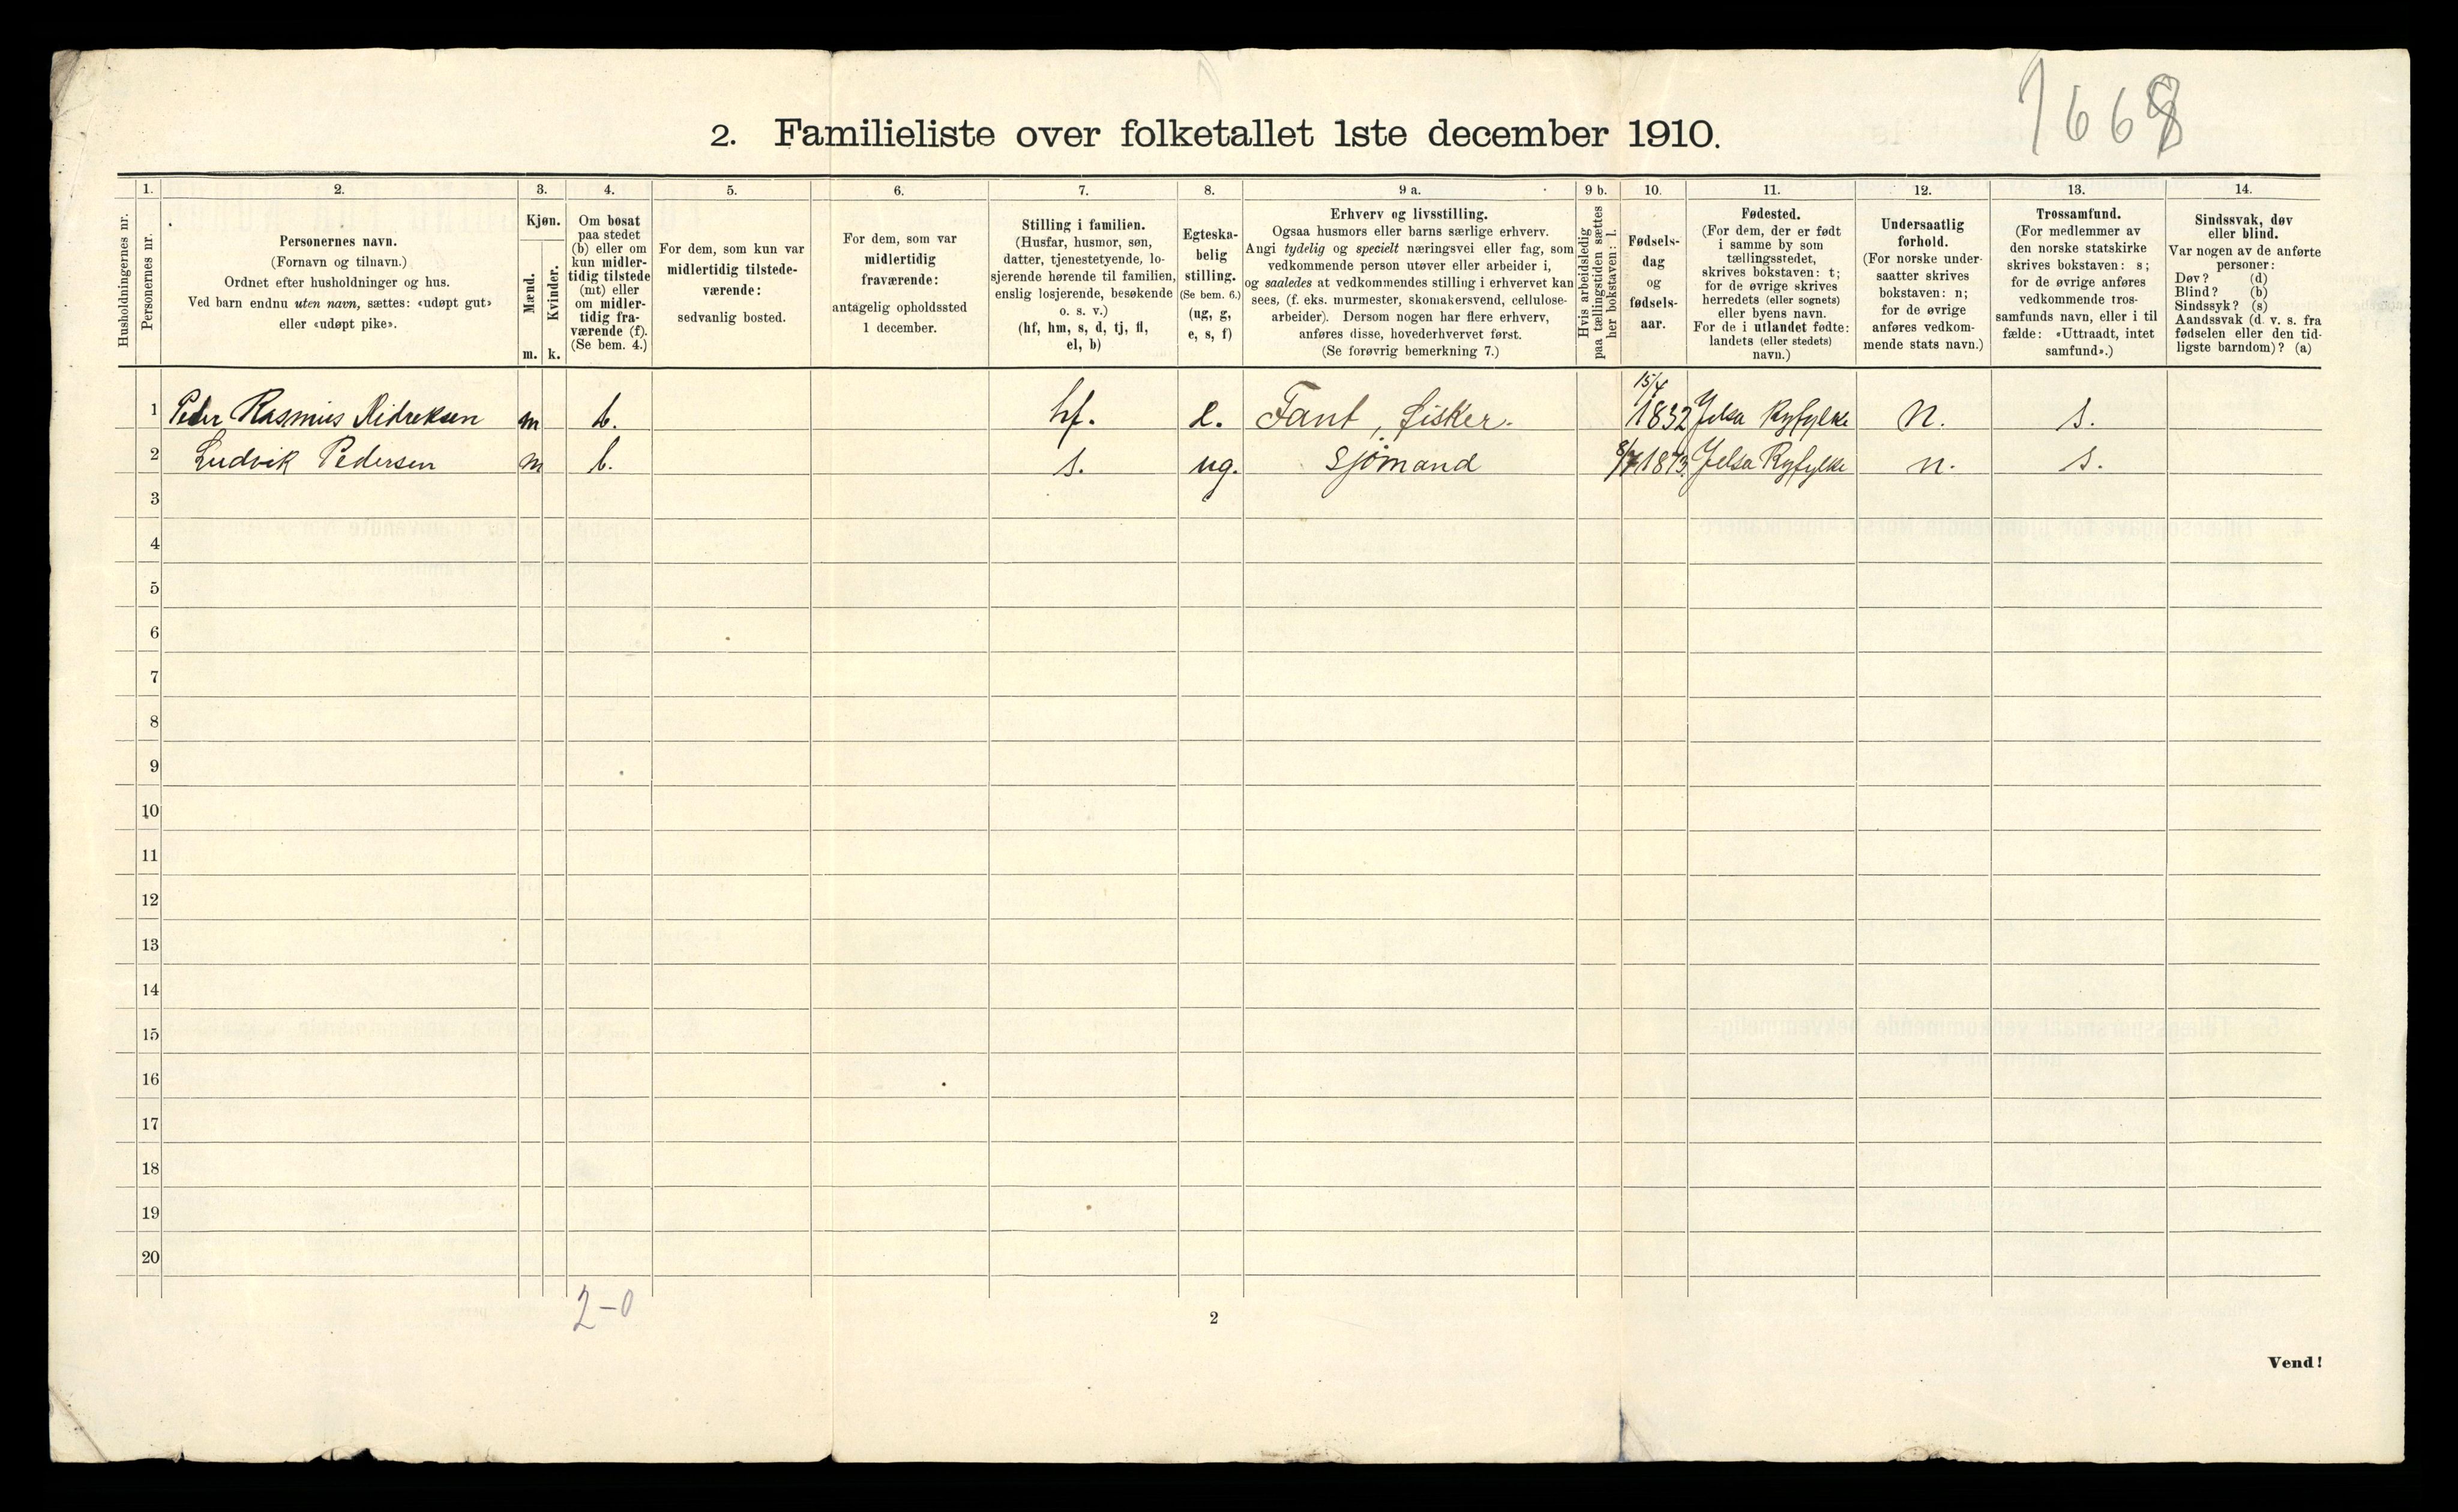 1668
2. Familieliste over folketallet 1ste december 1910.
Husholdningernes nr.
1.
Personernes nr.
2.
Personernes navn.
(Fornavn og tilnavn.)
Ordnet efter husholdninger og hus.
Ved barn endnu uten navn, sættes: «udøpt gut»
eller «udøpt pike».
3.
Kjøn.
Mænd.
Kvinder.
m. k.
4.
Om bosat
paa stedet
(b) eller om
kun midler-
tidig tilstede
(mt) eller
om midler-
tidig fra-
værende (f).
(Se bem. 4.)
5.
For dem, som kun var
midlertidig tilstede-
værende:
sedvanlig bosted.
6.
For dem, som var
midlertidig
fraværende:
antagelig opholdssted
1 december.
7.
Stilling i familien.
(Husfar, husmor, søn,
datter, tjenestetyende, lo-
sjerende hørende til familien,
enslig losjerende, besøkende
o. s. v.)
(hf, hm, s, d, tj, fl,
el, b)
8.
Egteska-
belig
stilling.
(Se bem. 6.)
(ug, g,
e, s, f)
9 a.
Erhverv og livsstilling.
Ogsaa husmors eller barns særlige erhverv.
Angi tydelig og specielt næringsvei eller fag, som
vedkommende person utøver eller arbeider i,
og saaledes at vedkommendes stilling i erhvervet kan
sees, (f. eks. murmester, skomakersvend, cellulose-
arbeider). Dersom nogen har flere erhverv,
anføres disse, hovederhvervet først.
(Se forøvrig bemerkning 7.)
9 b.
Hvis arbeidsledig
paa tællingstiden sættes
her bokstaven: l.
10.
Fødsels-
dag
og
fødsels-
aar.
11.
Fødested.
(For dem, der er født
i samme by som
tællingsstedet,
skrives bokstaven: t;
for de øvrige skrives
herredets (eller sognets)
eller byens navn.
For de i utlandet fødte:
landets (eller stedets)
navn.)
12.
Undersaatlig
forhold.
(For norske under-
saatter skrives
bokstaven: n;
for de øvrige
anføres vedkom-
mende stats navn.)
13.
Trossamfund.
(For medlemmer av
den norske statskirke
skrives bokstaven: s;
for de øvrige anføres
vedkommende tros-
samfunds navn, eller i til
fælde: «Uttraadt, intet
samfund».)
14.
Sindssvak, døv
eller blind.
Var nogen av de anførte
personer:
Døv? (d)
Blind? (b)
Sindssyk? (s)
Aandssvak (d. v. s. fra
fødselen eller den tid-
ligste barndom)? (a)
1 Peder Rasmus Didreksen m b. hf. e. Fant, fisker. 15/4 1832 Jelsa Ryfylke n. s.
2 Ludvik Pedersen m b. s. ug. sjömand 1873 Jelsa Ryfylke n. s.
3
4
5
6
7
8
9
10
11
12
13
14
15
16
17
18
19
20
2-0
2
Vend!